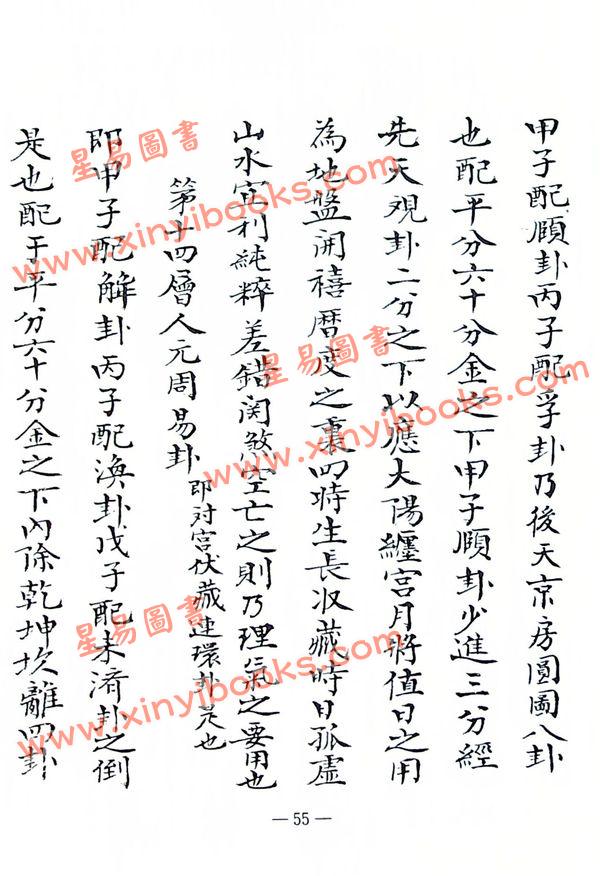 甲子配頤卦丙子配孚卦乃後天京房圓圖八卦
也配平分六十分金之下甲子頤卦少進三分經
先天观卦二分之下以應太陽纏宮月將值日之用
為地盤開禧曆度之裏四時生長收藏時日孤虛
山水宜利純粹差錯関煞空亡之則乃理氣之要用也
第十四層人元周易卦 即对宮伏藏連環卦是也
即甲子配解卦丙子配渙卦戊子配未济卦之倒
是也配于平分六十分金之下內除乾坤坎離四卦
星易圖書
www.xinyibooks.com
星易圖書
www.xinyibooks.com
星易圖書
www.xinyibooks.com
星易圖書
www.xinyibooks.com
— 55 —